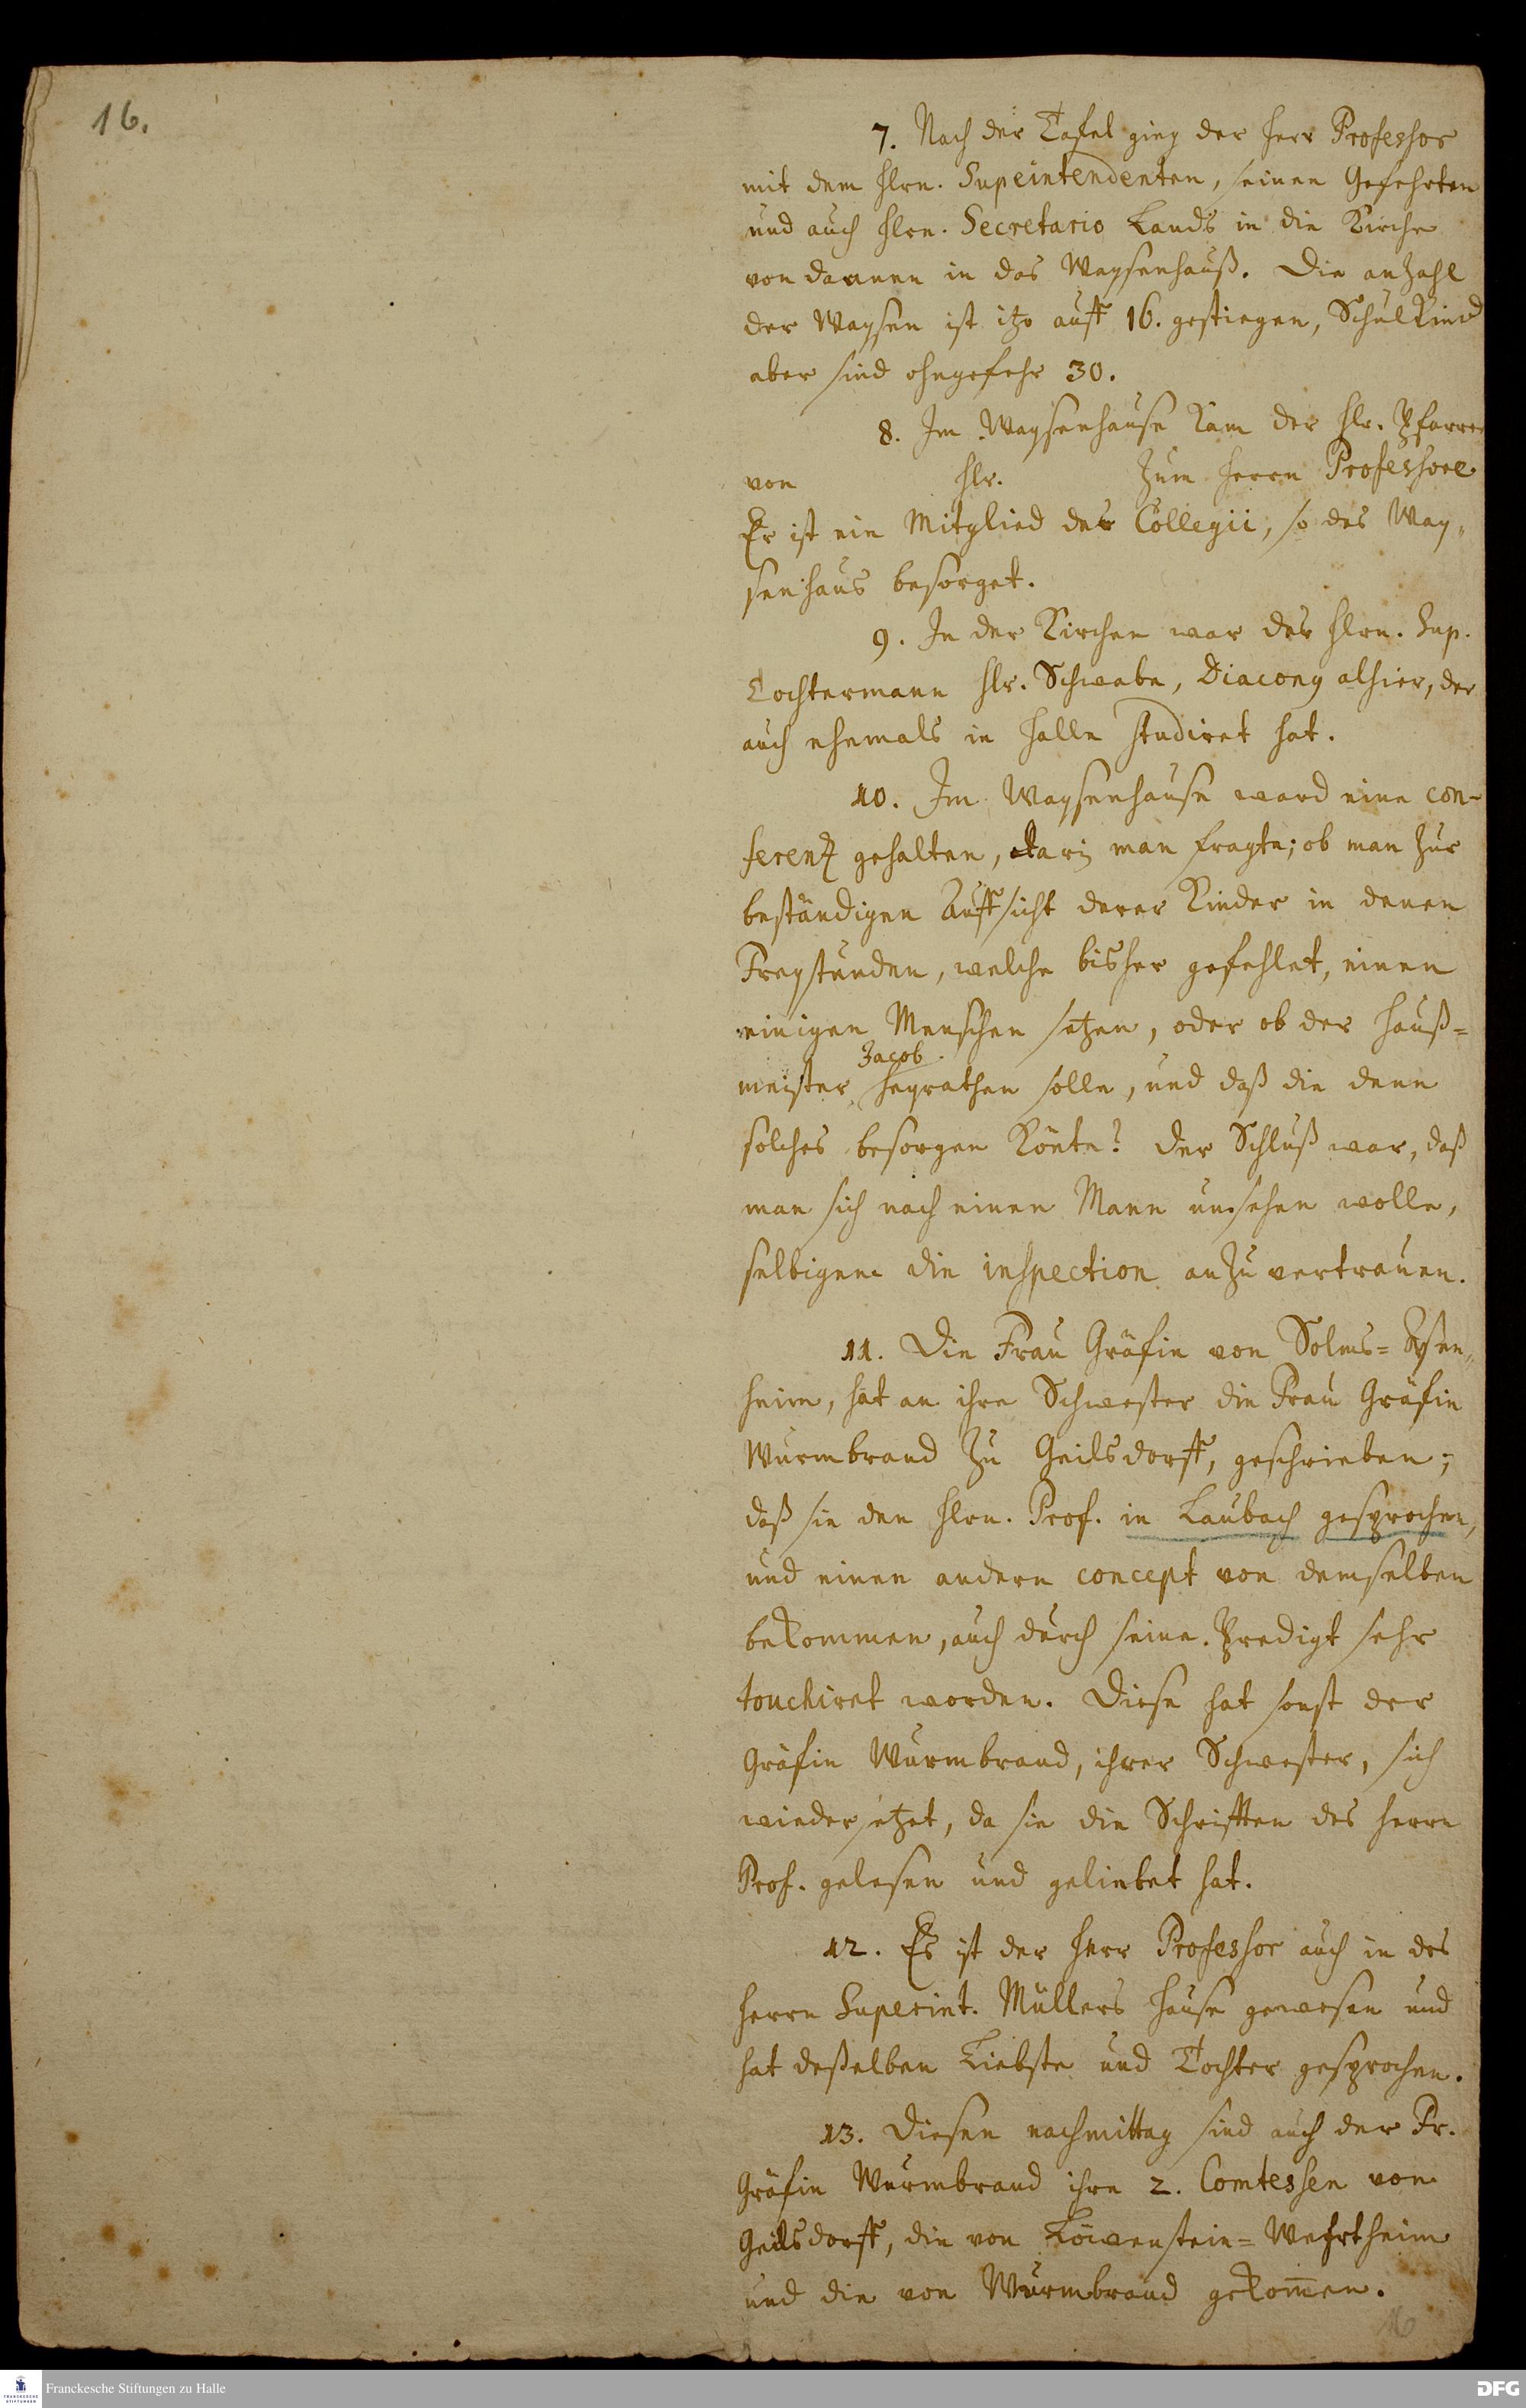 16.
7. Nach der Tafel ging der Herr Professor
mit dem Hrn. Supeintendenten, seinen Gefehrten
und auch Hrn. Secretario Lands in die Kirche
von dannen in das Waysenhauß. Die anzahl
der Waysen ist itzo auff 16. gestiegen, Schulkind
aber sind ohngefehr 30.
8. Im Waysenhause kam der Hr. Pfarrer
von Hr. zum Herrn Professore
Er ist ein Mitglied des Collegii, so das Way-
senhaus besorget.
9. In der Kirchen war des Hrn. Sup.
Tochtermann Hr. Schwabe, Diacong alhier, der
auch ehemals in Halle studiret hat.
10. Im Waysenhause ward eine con-
ferentz gehalten, man fragte; ob man zur
beständigen Auffsicht derer Kinder in denen
Freystunden, welche bisher gefehlet, einen
einigen Menschen setzen, oder ob der Hauß-
Jacob
meister heyrathen solle, und daß die denn
solches besorgen könte? Der Schluß war, daß
man sich nach einen Mann umsehen wolle,
selbigem die inspection anzuvertrauen.
11. Die Frau Gräfin von Solms-
heim, hat an ihre Schwester die Frau Gräfin
Wurmbrand zu Geilsdorff, geschrieben;
daß sie den Hrn. Prof. in Laubach gesprochen,
und einen andern concept von demselben
bekommen, auch durch seine Predigt sehr
touchiret worden. Diese hat sonst der
Gräfin Wurmbrand, ihrer Schwester, sich
wiedersetzet, da sie die Schrifften des Herrn
Prof. gelesen und geliebet hat.
12. Es ist der Herr Professor auch in des
Herrn Superint. Müllers Hause gewesen und
hat deßelben Liebste und Tochter gesprochen.
13. Diesen nachmittag sind auch der Fr.
Gräfin Wurmbrand ihre 2. Comtessen von
Geilsdorff, die von Löwenstein-Wehrtheim
und die von Wurmbrand gekom̅en.
16
FRANCKESCHE STIFTUNGEN
Franckesche Stiftungen zu Halle
DFG